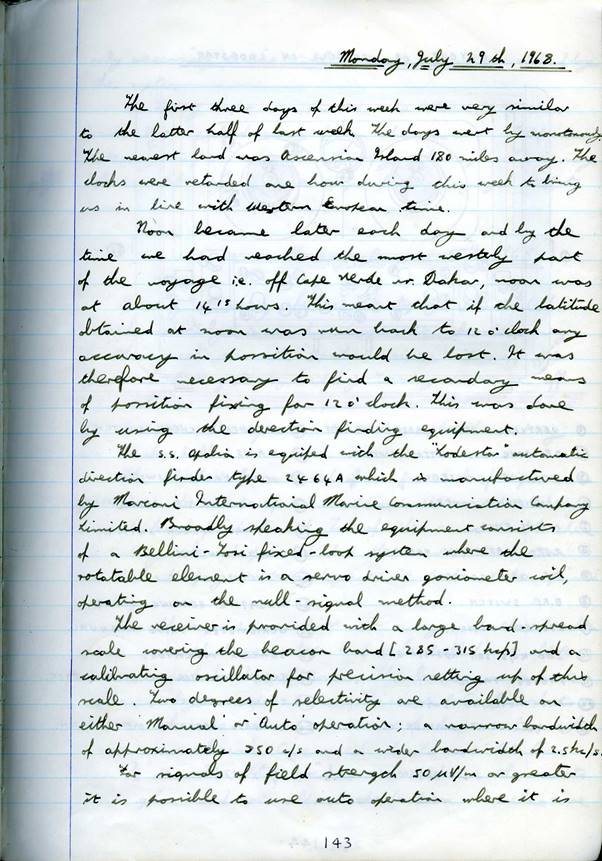 Monday, July 29th, 1968.
The first three days of this week were very similar
to the latter half of last week. The days went by monotonously.
The nearest land was Ascension Island 180 miles away. The
clocks were retarded one hour during this week to bring
us in line with Western European time.
Noon became later each day and by the
time we had reached the most westerly part
of the voyage i.e. off Cape Verde nr. Dakar, noon was
at about 14 15 hours. This meant that if the latitude
obtained at noon was run back to 12 o'clock any
accuracy in possition would be lost. It was
therefore necessary to find a secondary means
of possition fixing for 12 o'clock. This was done
by using the direction finding equipment.
The s.s. Opalia is equiped with the "Lodestar" automatic
direction finder type 2464A which is manufactured
by Marconi International Marine Communication Company
Limited. Broadly speaking the equipment consists
of a Bellini-Tosi fixed-loop system where the
rotatable element is a servo driven goniometer coil,
operating on the null-signal method.
The receiver is provided with a large band-spread
scale covering the beacon band [285-315 kcs] and a
calibrating oscillator for precision setting up of this
scale. Two degrees of selectivity are available on
either 'Manual' or 'Auto' operation; a narrow bandwidth
of approximately 350 c/s and a wider bandwidth of 2.5kc/s.
For signals of field strength 50 µV/m or greater
it is possible to use auto operation where it is
143